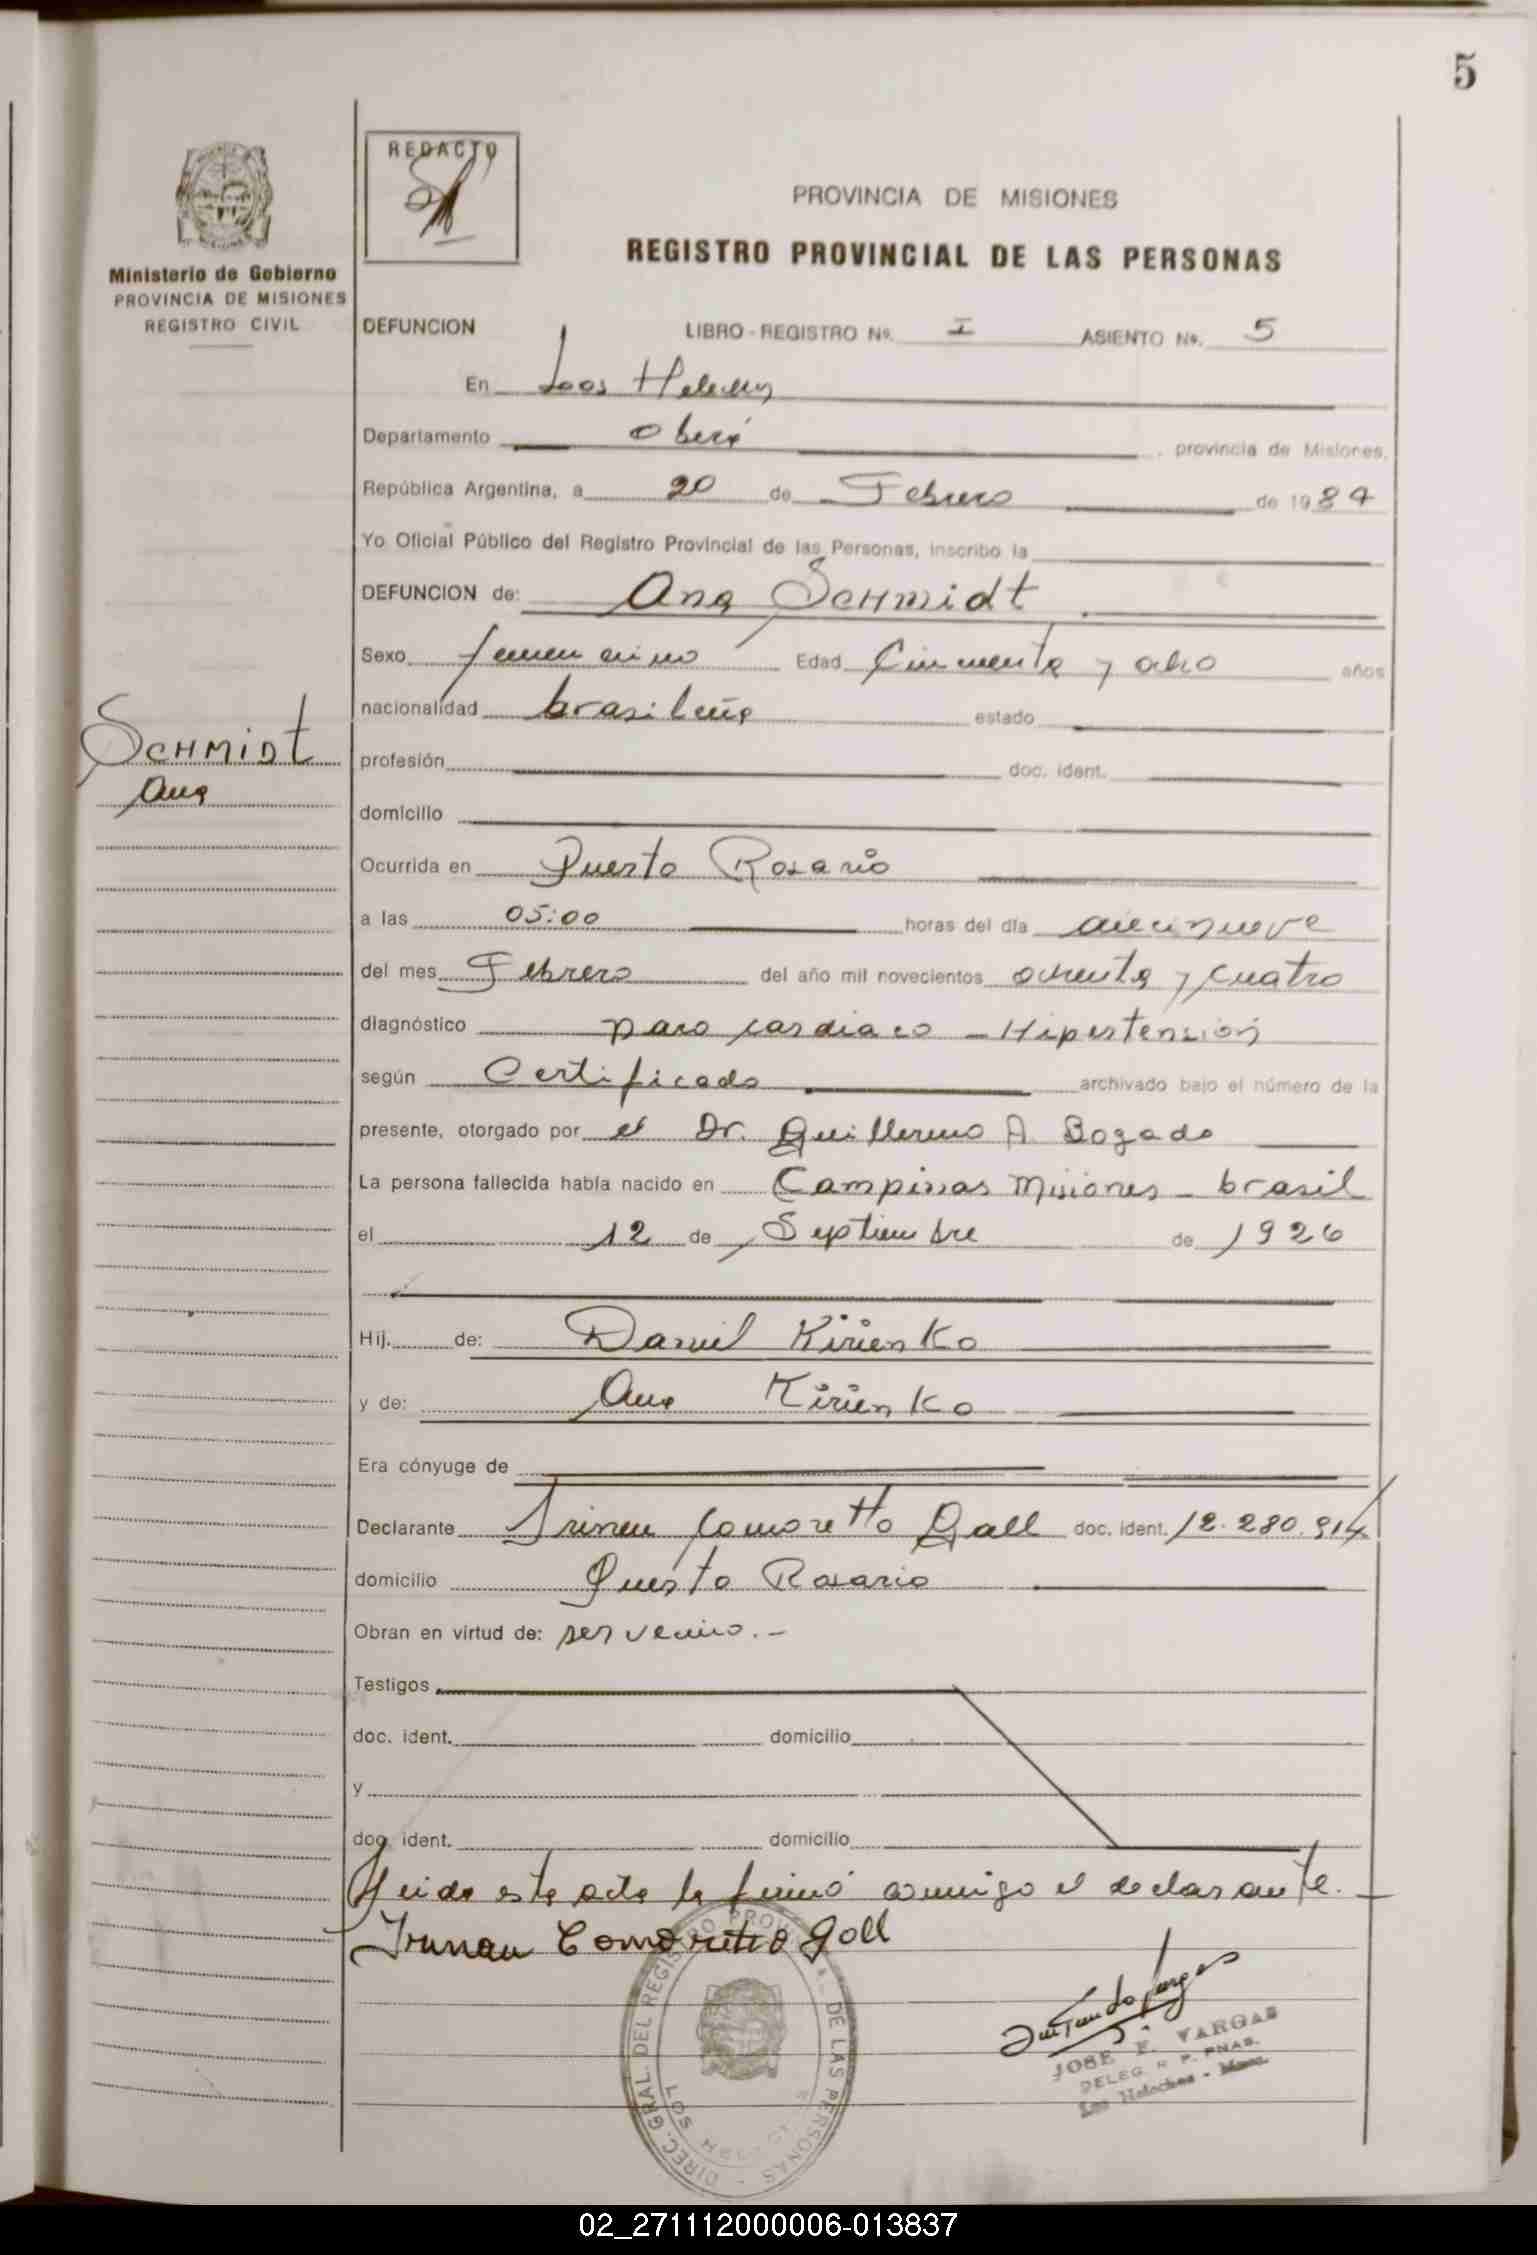 5
REDACTO
PROVINCIA DE MISIONES
REGISTRO PROVINCIAL DE LAS PERSONAS
Ministerio de Gobierno
PROVINCIA DE MISIONES
REGISTRO CIVIL
DEFUNCION LIBRO-REGISTRO Nº. I ASIENTO Nº. 5
En
Departamento Oberá provincia de Misiones,
República Argentina, a 20 de Febrero de 1984
Yo Oficial Público del Registro Provincial de las Personas, inscribo la
DEFUNCION de: Ana Schmidt
Sexo femenino Edad Cincuenta y ocho años
nacionalidad brasileña estado
SCHMIDT
Ana
profesión doc. ident.
domicilio
Ocurrida en Puerto Rosario
a las 05:00 horas del día diecinueve
del mes Febrero del año mil novecientos ochenta y cuatro
diagnóstico paro cardiaco - Hipertensión
según Certificado archivado bajo el número de la
presente, otorgado por el Dr. Guillermo A Bogado
La persona fallecida había nacido en Campinas Misiones - brasil
el 12 de Septiembre de 1926
Hij. de: Daniel Kirienko
y de: Ana Kirienko
Era cónyuge de
Declarante Comoretto Gall doc. ident. 12.280.914
domicilio Puerto Rosario
Obran en virtud de: ser vecino.-
Testigos
doc. ident. domicilio
y
doc. ident. domicilio
Leida esta acta la firmó conmigo el declarante.
Comoretto Goll
DIREC. GRAL. DEL REGISTRO PROV. DE LAS PERSONAS
LOS
JOSE F. VARGAS
DELEG. R. P. PNAS.
Los Helechos - Mnes.
02_271112000006-013837